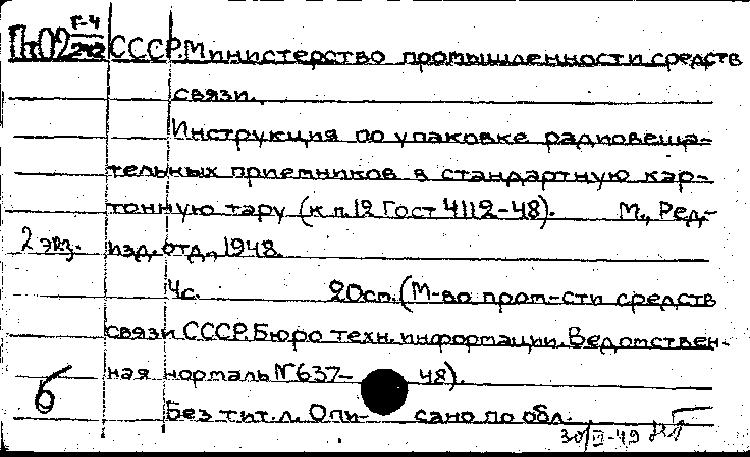 Пт09 Г-4/242 СССР. Министерство промышленности средств
связи.
Инструкция по упаковке радиовеща-
тельных приемников в стандартную кар-
тонную тару (к п.12 Гост 4112-48). М., Ред.-
2 экз. изд. отд., 1948
4с. 20см. (М-во пром-сти средств
связи СССР. Бюро техн. информации. Ведомствен-
ная нормаль №637-48).
Б Без тит. л. Описано по обл.
30/II-49